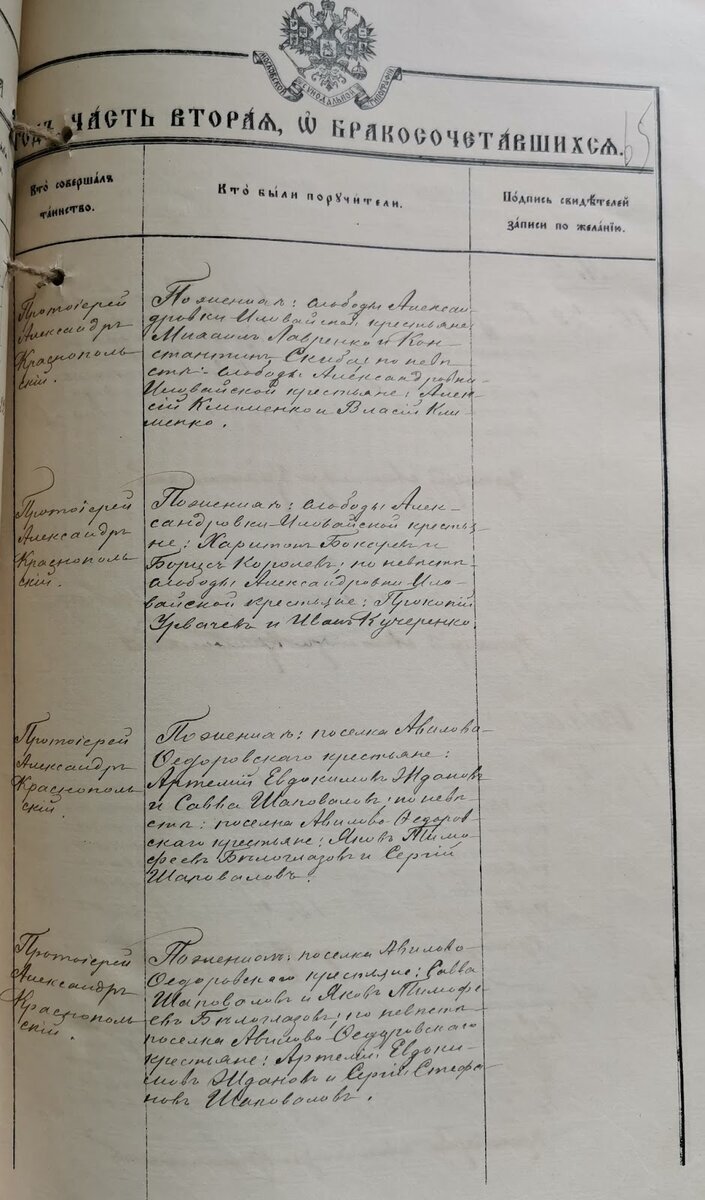 МОСКОВСКОЙ СѴНОДАЛЬНОЙ ТИПОГРАФІИ
ГОДЪ, ЧА́СТЬ ВТОРА́Я, Ѡ҆ БРАКОСОЧЕТА́ВШИХСЯ.
65
Кто̀ совершалъ
та́инство.
Кто̀ бы́ли порꙋчи́тели.
По́дпись свидѣ́телей
за́писи по жела́нїю.
Протоіерей
Александръ
Краснополь-
скій.
По женихѣ: слободы Алексан-
дровки-Иловайской крестьяне:
Михаилъ Лавренко и Кон-
стантинъ Скиба; по невѣ-
стѣ: слободы Александровки-
Иловайской крестьяне: Алек-
сѣй Клименко и Власій Кли-
менко.
Протоіерей
Александръ
Краснополь-
скій.
По женихѣ: слободы Алек-
сандровки-Иловайской крестья-
не: Харитонъ Бокаревъ и
Борисъ Королевъ; по невѣстѣ
слободы Александровки Ило-
вайской крестьяне: Прокопій
Урвачевъ и Иванъ Кучеренко.
Протоіерей
Александръ
Краснополь-
скій.
По женихѣ: поселка Авилова-
Ѳедоровскаго крестьяне:
Артемій Евдокимовъ Ждановъ
и Савва Шаповаловъ; по невѣ-
стѣ: поселка Авилово-Ѳедоров-
скаго крестьяне: Яковъ Тимо-
феевъ Бѣлоглазовъ и Сергій
Шаповаловъ.
Протоіерей
Александръ
Краснополь-
скій.
По женихѣ: поселка Авилово-
Ѳедоровскаго крестьяне: Савва
Шаповаловъ и Яковъ Тимофе-
евъ Бѣлоглазовъ; по невѣстѣ
поселка Авилово-Ѳедоровскаго
крестьяне: Артемій Евдоки-
мовъ Ждановъ и Сергій Стефа-
новъ Шаповаловъ.